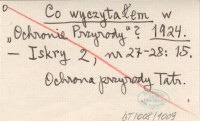 Co wyczytałem w
„Ochronie Przyrody"? 1924.
— Iskry 2, nr 27-28: 15.
Ochrona przyrody Tatr.
BT/008/9009